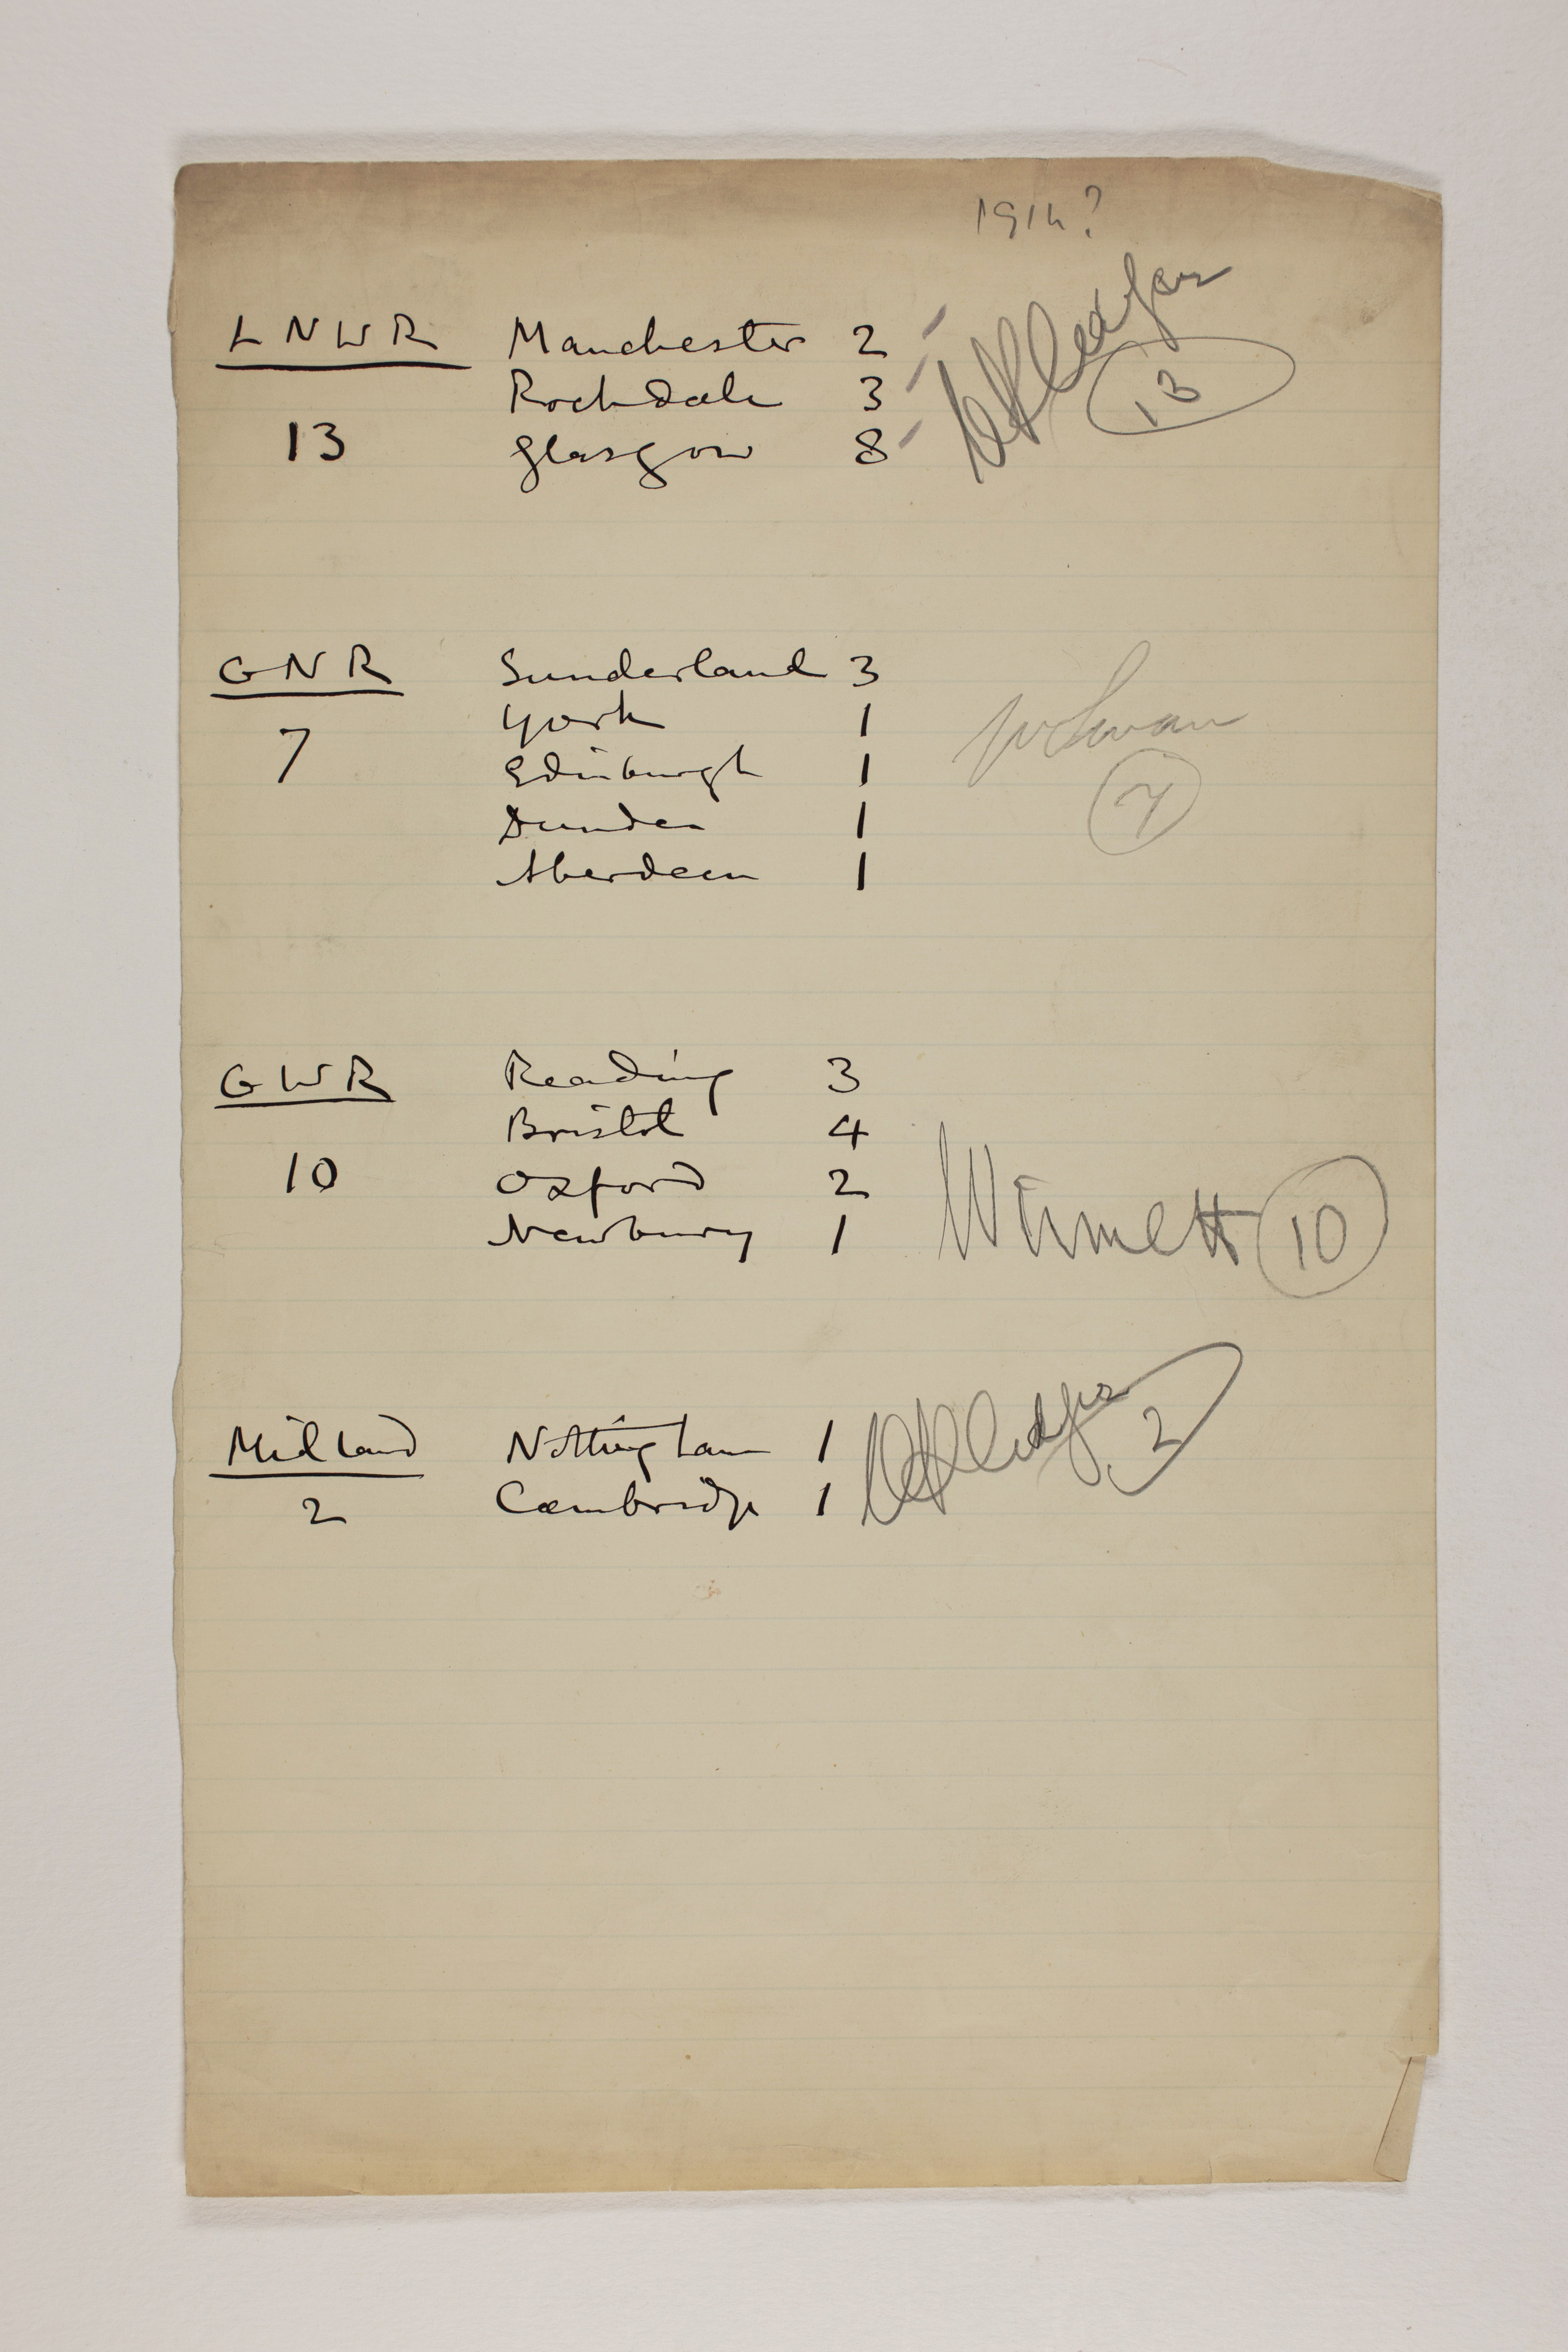 1914?
L N W R Manchester 2
Rochdale 3
13 Glasgow 8
13
G N R Sunderland 3
York 1
7 Edinburgh 1
Dundee 1
Aberdeen 1
W Swan
7
G W R Reading 3
Bristol 4
10 Oxford 2
Newbury 1
10
Midland Nottingham 1
2 Cambridge 1
2